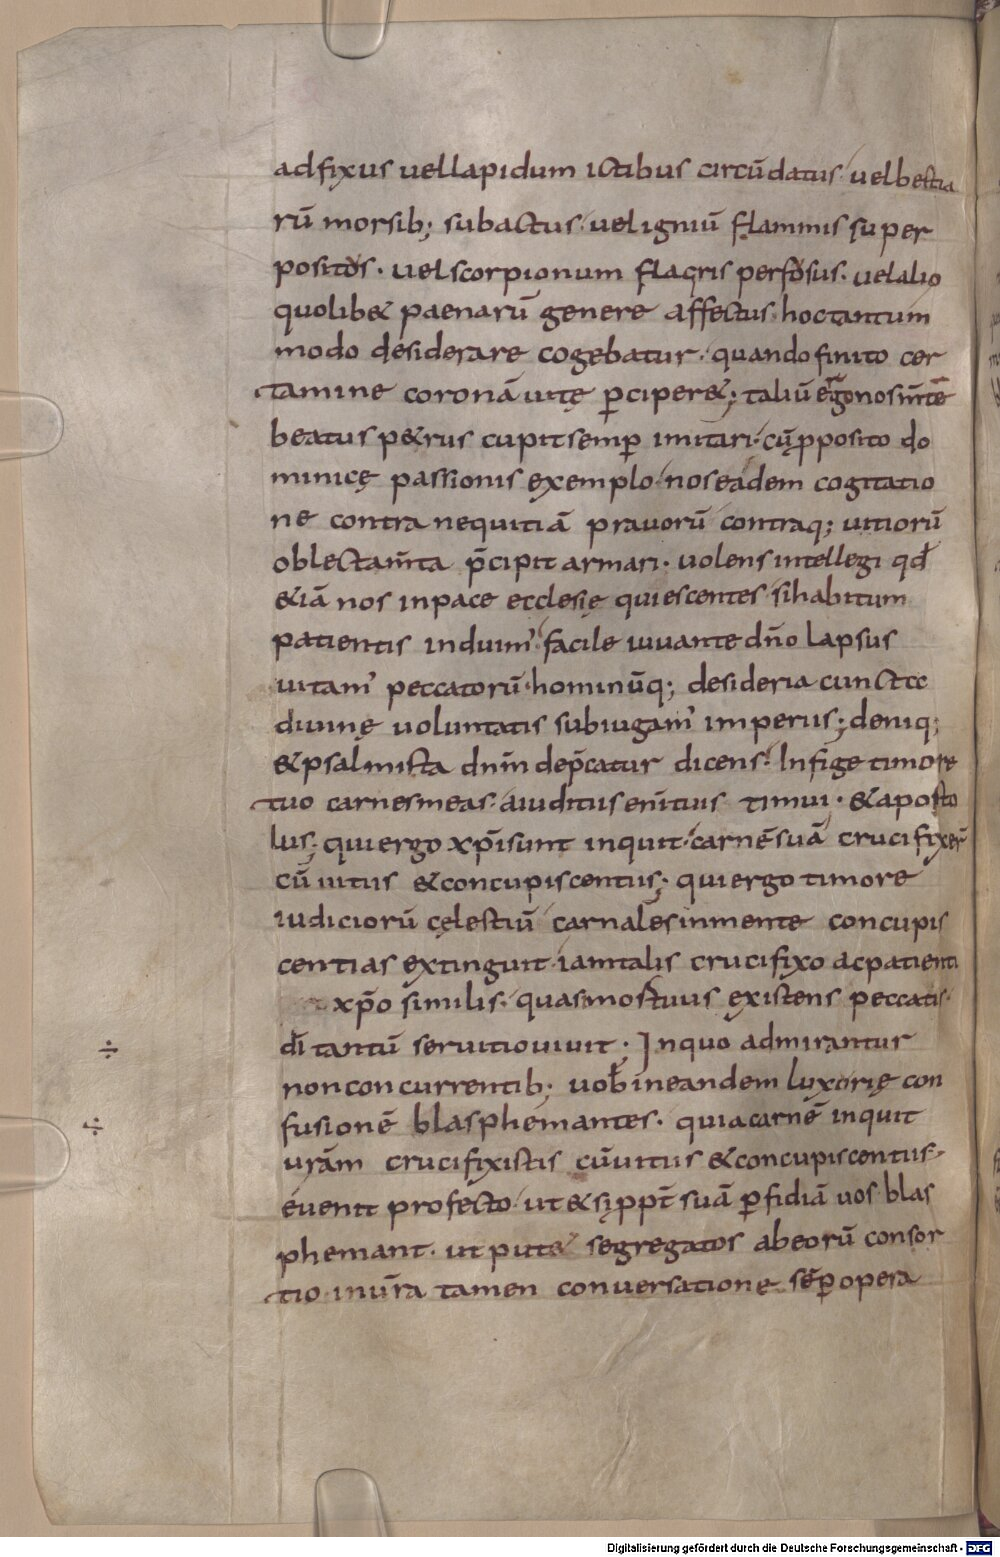 adfixus uel lapidum ictibus circūdatus· uel bestia
rū morsib; subactus· uel igniū flammis super
positos· uel scorpionum flagris perfosus· uel alio
quolib& paenarū genere affectus· hoc tantum
modo desiderare cogebatur· quando finito cer
tamine coronā uitę p̄ciper&; taliū
beatus p&rus cupit semp̄ imitari· cū pposito do
minicę passionis exemplo· nos eadem cogitatio
ne contra nequitiā prauorū contraq; uitiorū
oblectam̄ta p̄cipit armari· uolens intellegi qđ
&iā nos in pace ecclesię quiescentes· si habitum
patientis induim᾽ facile iuuante dn̄o lapsus
uitam᾽ peccatorū· hominūq; desideria cuncta
diuinę uoluntatis subiugam᾽ imperiis; deniq;
& psalmista dnm̄ dep̄catur dicens· Infige timore
tuo carnes meas· a iuditiis enī tuis timui· & aposto
lus; qui ergo xp̄i sunt inquit· carnē suā crucifixer̄
cū uitiis & concupiscentiis; qui ergo timore
iudiciorū cęlestiū carnales in mente concupis
centias extinguit· iam talis crucifixo ac patienti
xp̄o similis· quasi mostuus existens peccatis·
dī tantū seruitio uiuit· In quo admirantur
non concurrentib; uob̄ in eandem luxorię con
fusionē blasphemantes· quia carnē inquit
ur̄am crucifixistis cū uitiis & concupiscentiis·
euenit profecto· ut & si ppt̄ suā p̄fidiā uos blas
phemant· ut puta segregatos ab eorū consor
tio· in ur̄a tamen conuersatione sēp opera
÷
÷
Digitalisierung gefördert durch die Deutsche Forschungsgemeinschaft - DFG